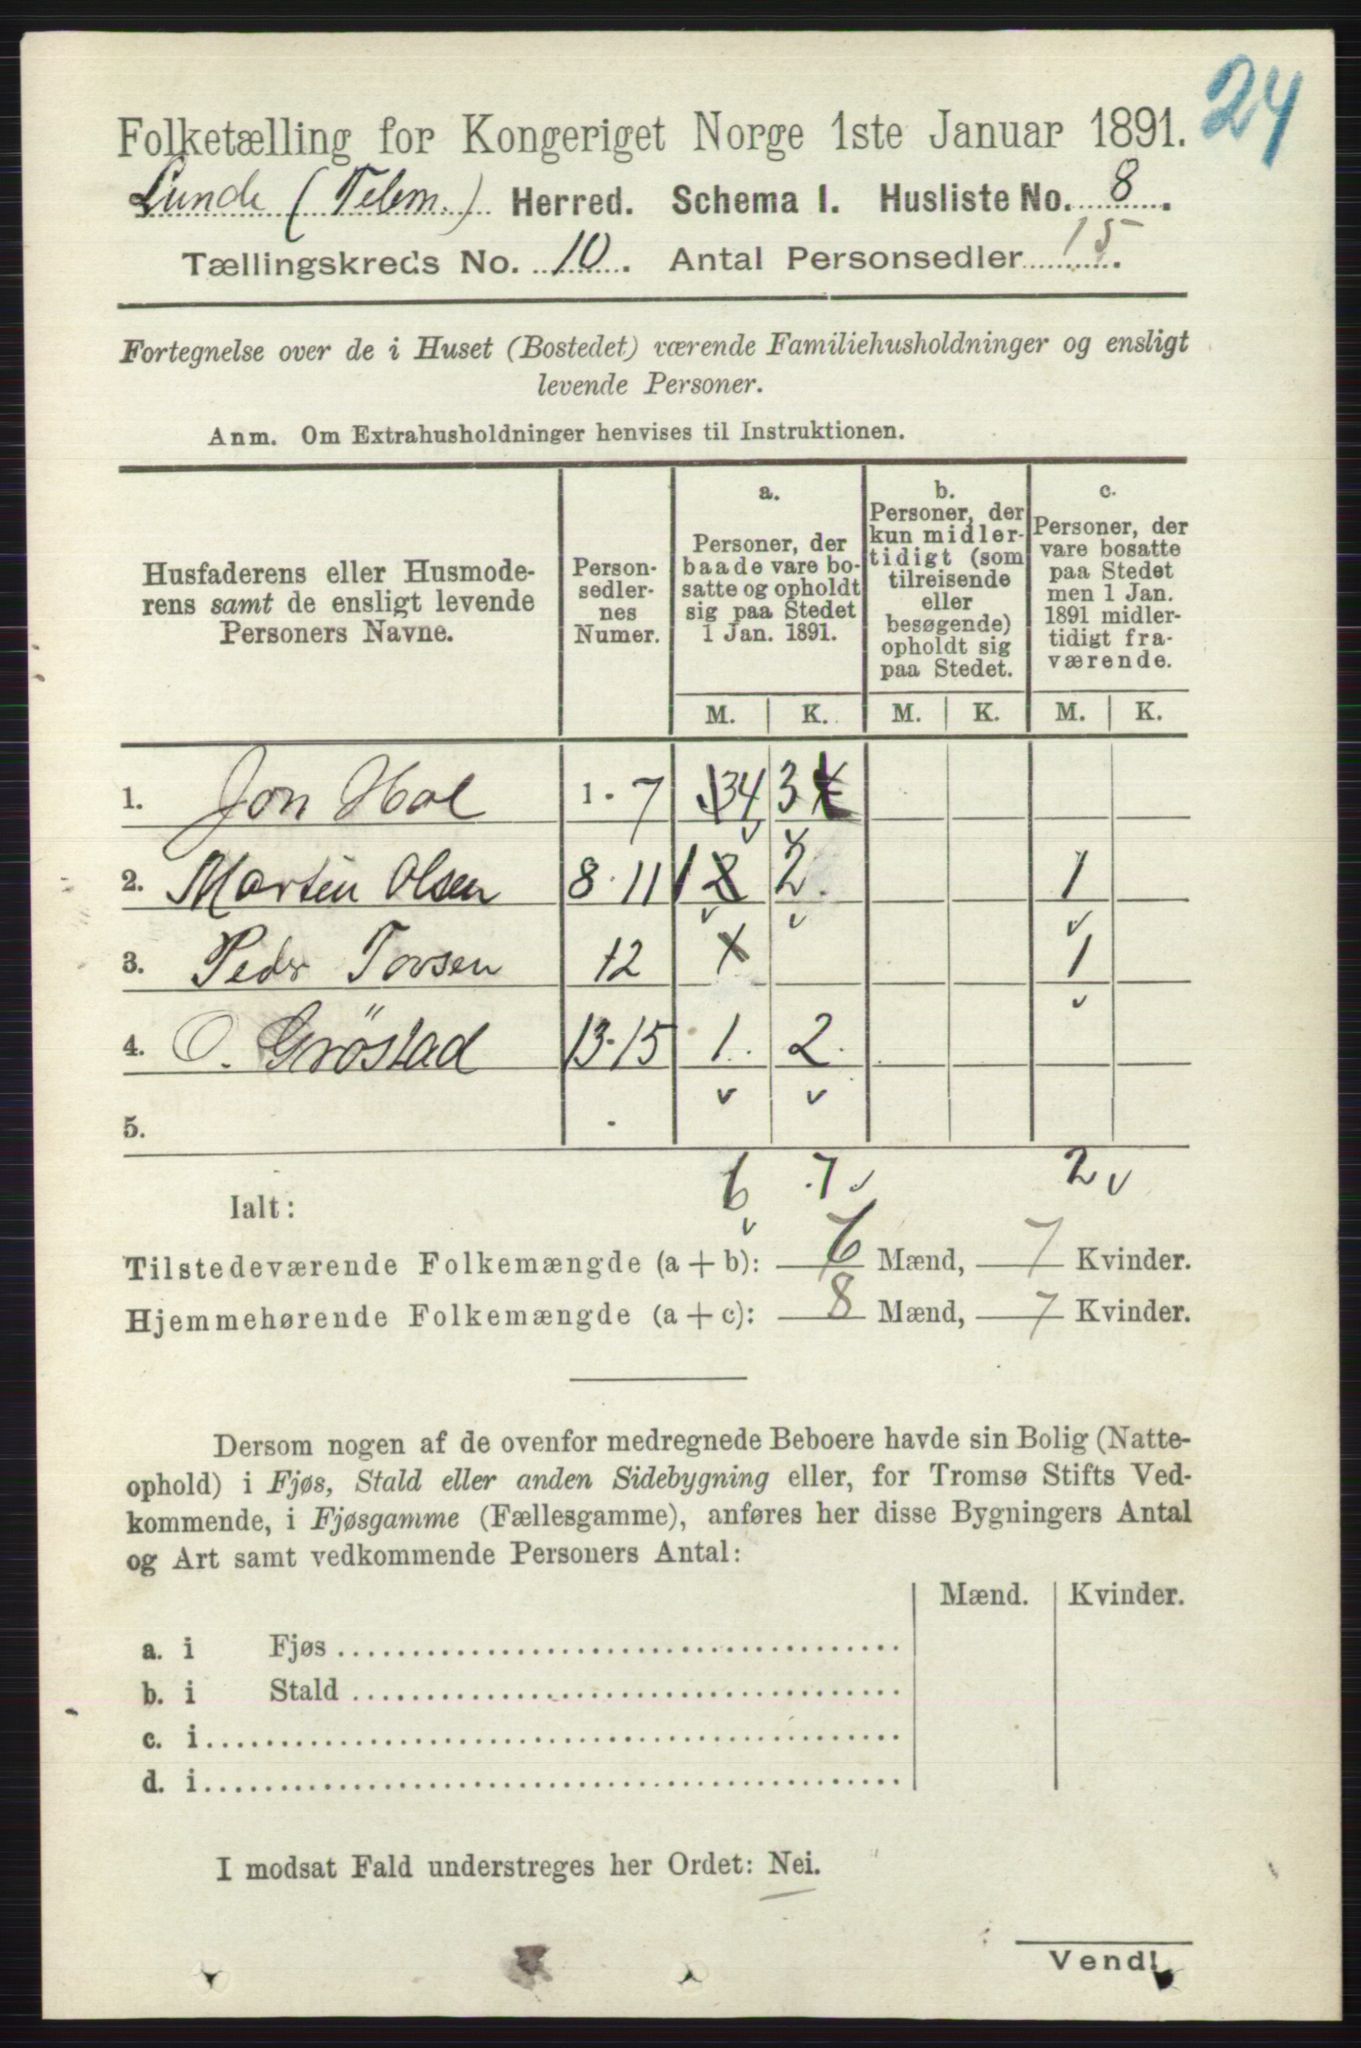 24
Folketælling for Kongeriget Norge 1ste Januar 1891.
Lunde (Telem.) Herred. Schema I. Husliste No. 8.
Tællingskreds No. 10. Antal Personsedler 15.
Fortegnelse over de i Huset (Bostedet) værende Familiehusholdninger og ensligt
levende Personer.
Anm. Om Extrahusholdninger henvises til Instruktionen.
Husfaderens eller Husmode-
rens samt de ensligt levende
Personers Navne.
Person-
sedler-
nes
Numer.
a.
Personer, der
baade vare bo-
satte og opholdt
sig paa Stedet
1 Jan. 1891.
b.
Personer, der
kun midler-
tidigt (som
tilreisende
eller
besøgende)
opholdt sig
paa Stedet.
c.
Personer, der
vare bosatte
paa Stedet
men 1 Jan.
1891 midler-
tidigt fra-
værende.
M. K. M. K. M. K.
1. Jon Hol 1 - 7 4 3
2. Martin Olsen 8 - 11 1 2 1
3. Peder Torsen 12 1
4. O. Gröstad 13-15 1. 2.
5.
Ialt: 6 7 2
Tilstedeværende Folkemængde (a + b): 6 Mænd, 7 Kvinder.
Hjemmehørende Folkemængde (a + c): 8 Mænd, 7 Kvinder.
Dersom nogen af de ovenfor medregnede Beboere havde sin Bolig (Natte-
ophold) i Fjøs, Stald eller anden Sidebygning eller, for Tromsø Stifts Ved-
kommende, i Fjøsgamme (Fællesgamme), anføres her disse Bygningers Antal
og Art samt vedkommende Personers Antal:
Mænd. Kvinder.
a. i Fjøs
b. i Stald
c. i
d. i
I modsat Fald understreges her Ordet: Nei.
Vend!